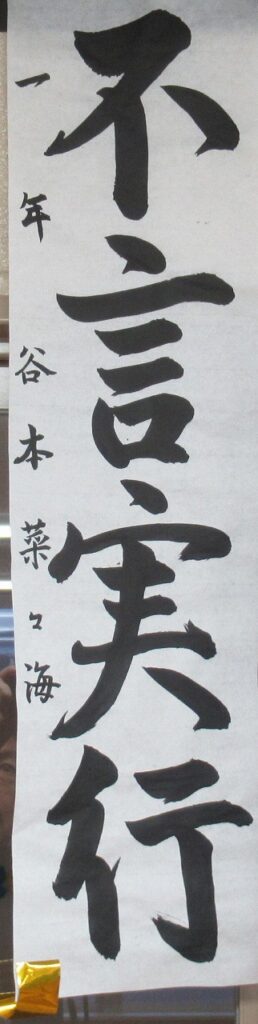 不言実行
一年 谷本菜々海